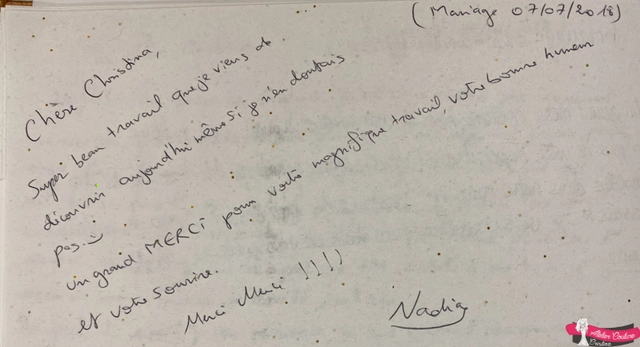 (Mariage 07/07/2018)
Chère Christina,
Super beau travail que je viens de
découvrir aujourd'hui même si je n'en doutais
pas :)
un grand MERCI pour votre magnifique travail, votre bonne humeur
et votre sourire.
Merci Merci !!!!
Nadia
Atelier Couture